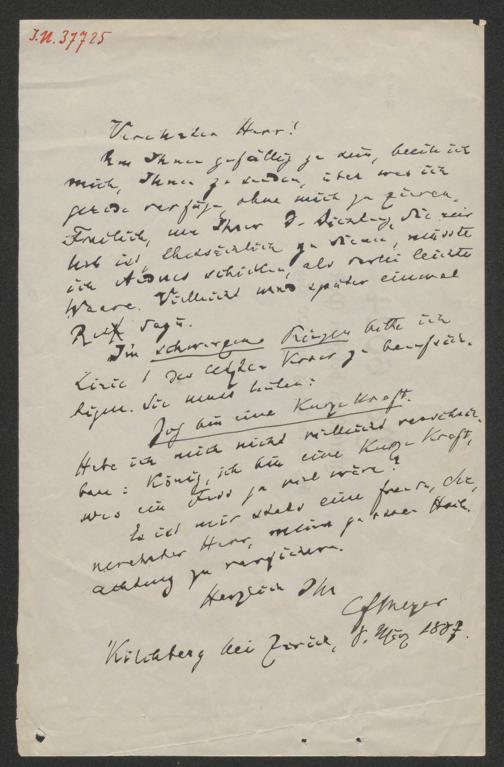 I.N. 37725
Verehrter Herr!
Um Ihnen gefällig zu sein, beeile ich
mich, Ihnen zu senden, über was ich
gerade verfüge, ohne mich zu zieren.
Freilich, um Ihrer D. Dichtung, die mir
lieb ist, thatsächlich zu dienen, müsste
ich Andres schicken, als solche leichte
Waare. Vielleicht wird später einmal
Rath dazu.
Im schwarzen Prinzen bitte ich
Zeile 1 der letzten Strofe zu berück-
tigen. Sie muss lauten:
Ich bin eine kurze Kraft.
Habe ich mich nicht vielleicht verschrie-
ben: König, ich bin eine kurze Kraft,
was ein Fuss zu viel wäre?
Es ist mir stets eine Freude, Sie,
verehrter Herr, meiner ganzen Hoch-
achtung zu versichern.
Herzlich Ihr
CFMeyer
Kilchberg bei Zürich, 8. März 1887.